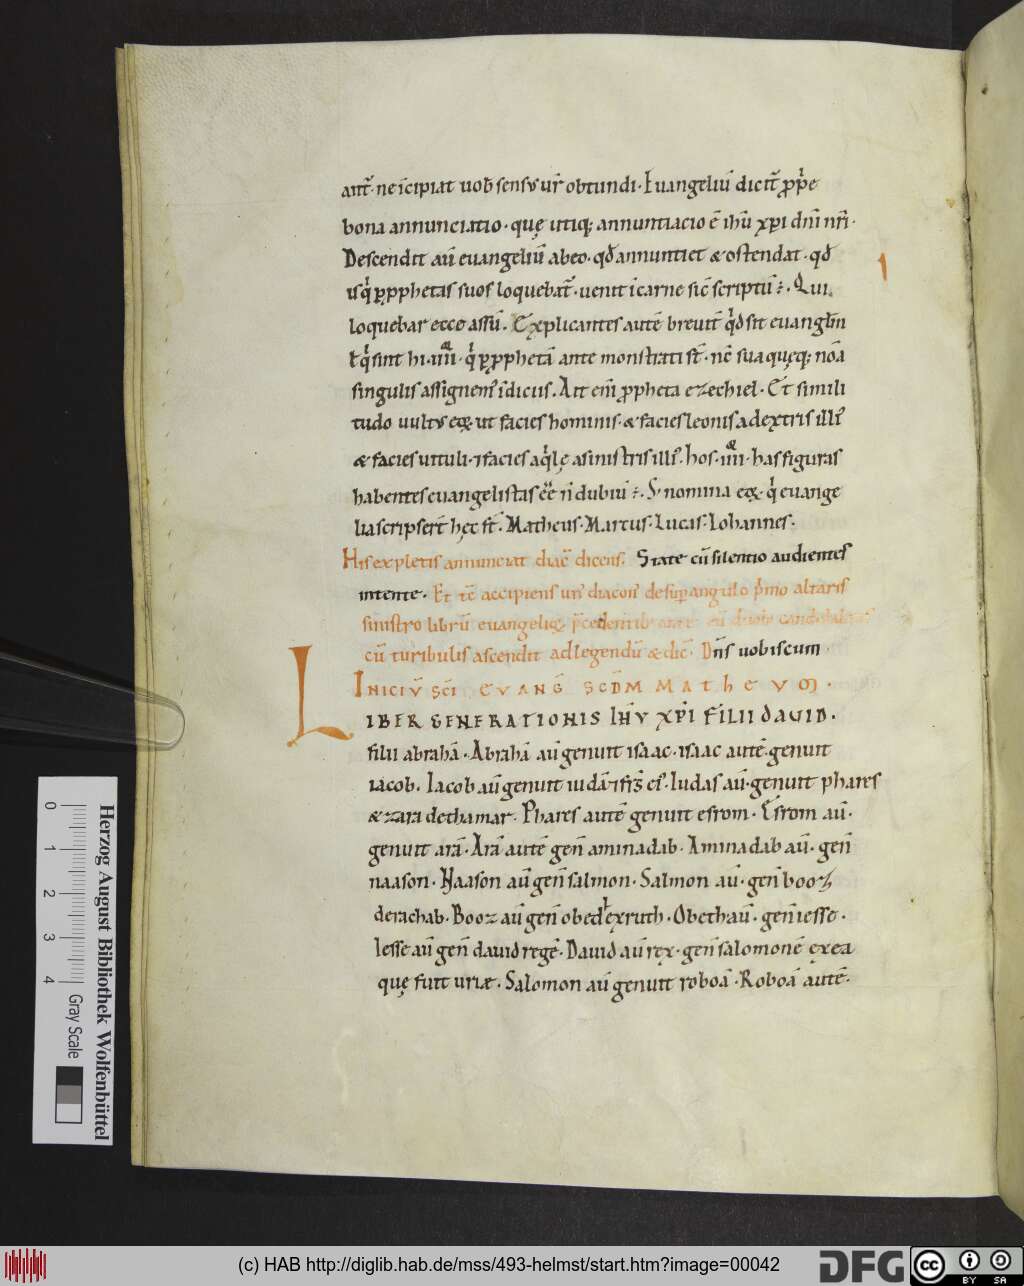 antt̄· ne īcipiat uob̄ sensꝰ ur̄ obtundi· Euangeliū dicit̄ ꝓp̄e
bona annunciatio· quę utiq; annuntiacio ē ih̄u xp̄i dn̄i nr̄i·
Descendit aū euangeliū ab eo· qd̄ annuntiet & ostendat· qd̄
loquebar ecce assū. Explicantes autē breuit̄ qd̄ sit euangl̄m
singulis assignem' īdiciis. Ait em̄ ꝓpheta ezechiel· Et simili
tudo uultꝰ eoꝝ· ut facies hominis· & facies leonis adextris illi'
& facies uituli· ⁊ facies aq̄lę asinistris illi'. hos· iiii· has figuras
habentes euangelistas eē n̄ dubiū ē. S; nomina eoꝝ· q̄ euange
lia scripser̄t hęc st̄· Matheus· Marcus· Lucas· Iohannes·
His expletis annunciat diac̄ dicens. State cū silentio audientes
intente· Et tē accipiens un' diacon' desup̄ angulo p̄mo altaris
sinistro librū euangelioꝝ p̄cedentib;
cū turibulis ascendit ad legendū & dic̄· Dn̄s uobiscum
INICIŪ SC̄I EVANḠ SCD̄M MATHEVM·
LIBER GENERATIONIS IH̄V XP̄I FILII DAVID·
filii abrahā· Abrahā aū genuit isaac· isaac autē genuit
iacob· Iacob aū genuit iudā ⁊ fr̄s ei'· Iudas aū· genuit phares
& zara de thamar· Phares autē genuit esrom· Esrom aū·
genuit arā· Arā autē gen̄ aminadab· Aminadab aū· gen̄
naason· Naason aū gen̄ salmon· Salmon aū· gen̄ booz
de rachab· Booz aū gen̄ obed ex ruth· Obeth aū· gen̄ iesse·
Iesse aū gen̄ dauid regē· Dauid aū rex· gen̄ salomonē ex ea
quę fuit uriæ· Salomon aū genuit roboā· Roboā autē·
Herzog August Bibliothek Wolfenbüttel
0 1 2 3 4 Gray Scale
(c) HAB http://diglib.hab.de/mss/493-helmst/start.htm?image=00042
DFG
cc BY SA